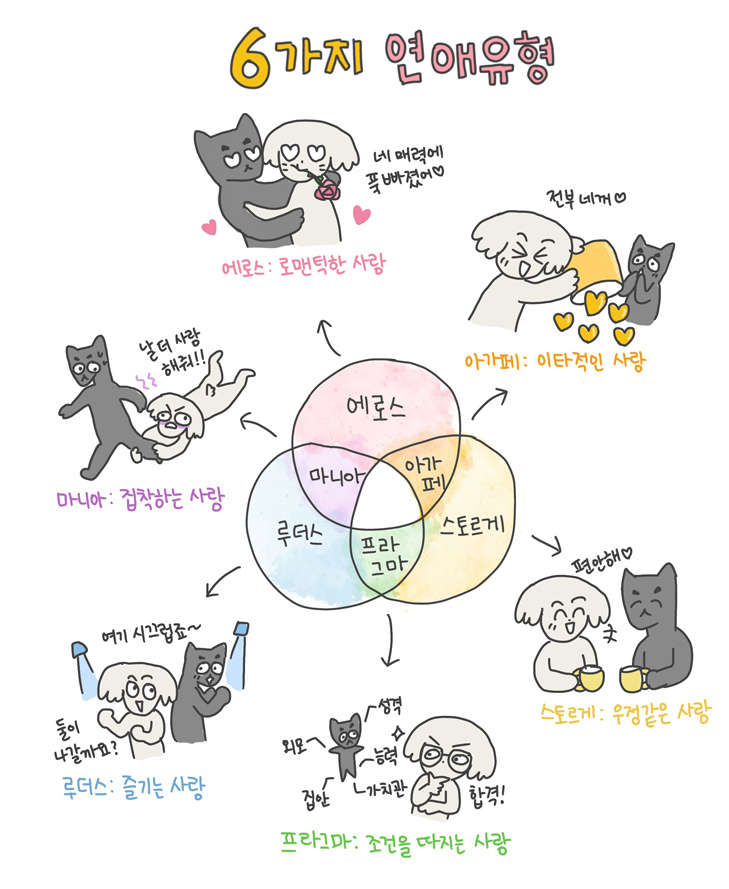 6가지 연애유형
네 매력에
푹 빠졌어♡
에로스: 로맨틱한 사랑
전부 네꺼♡
아가페: 이타적인 사랑
날 더 사랑
해줘!!
마니아: 집착하는 사랑
에로스
마니아
아가
페
루더스
스토르게
프라
그마
편안해♡
スト
스토르게: 우정같은 사랑
여기 시끄럽죠~
둘이
나갈까요?
루더스: 즐기는 사랑
성격
외모
능력
집안
가치관
합격!
프라그마: 조건을 따지는 사랑